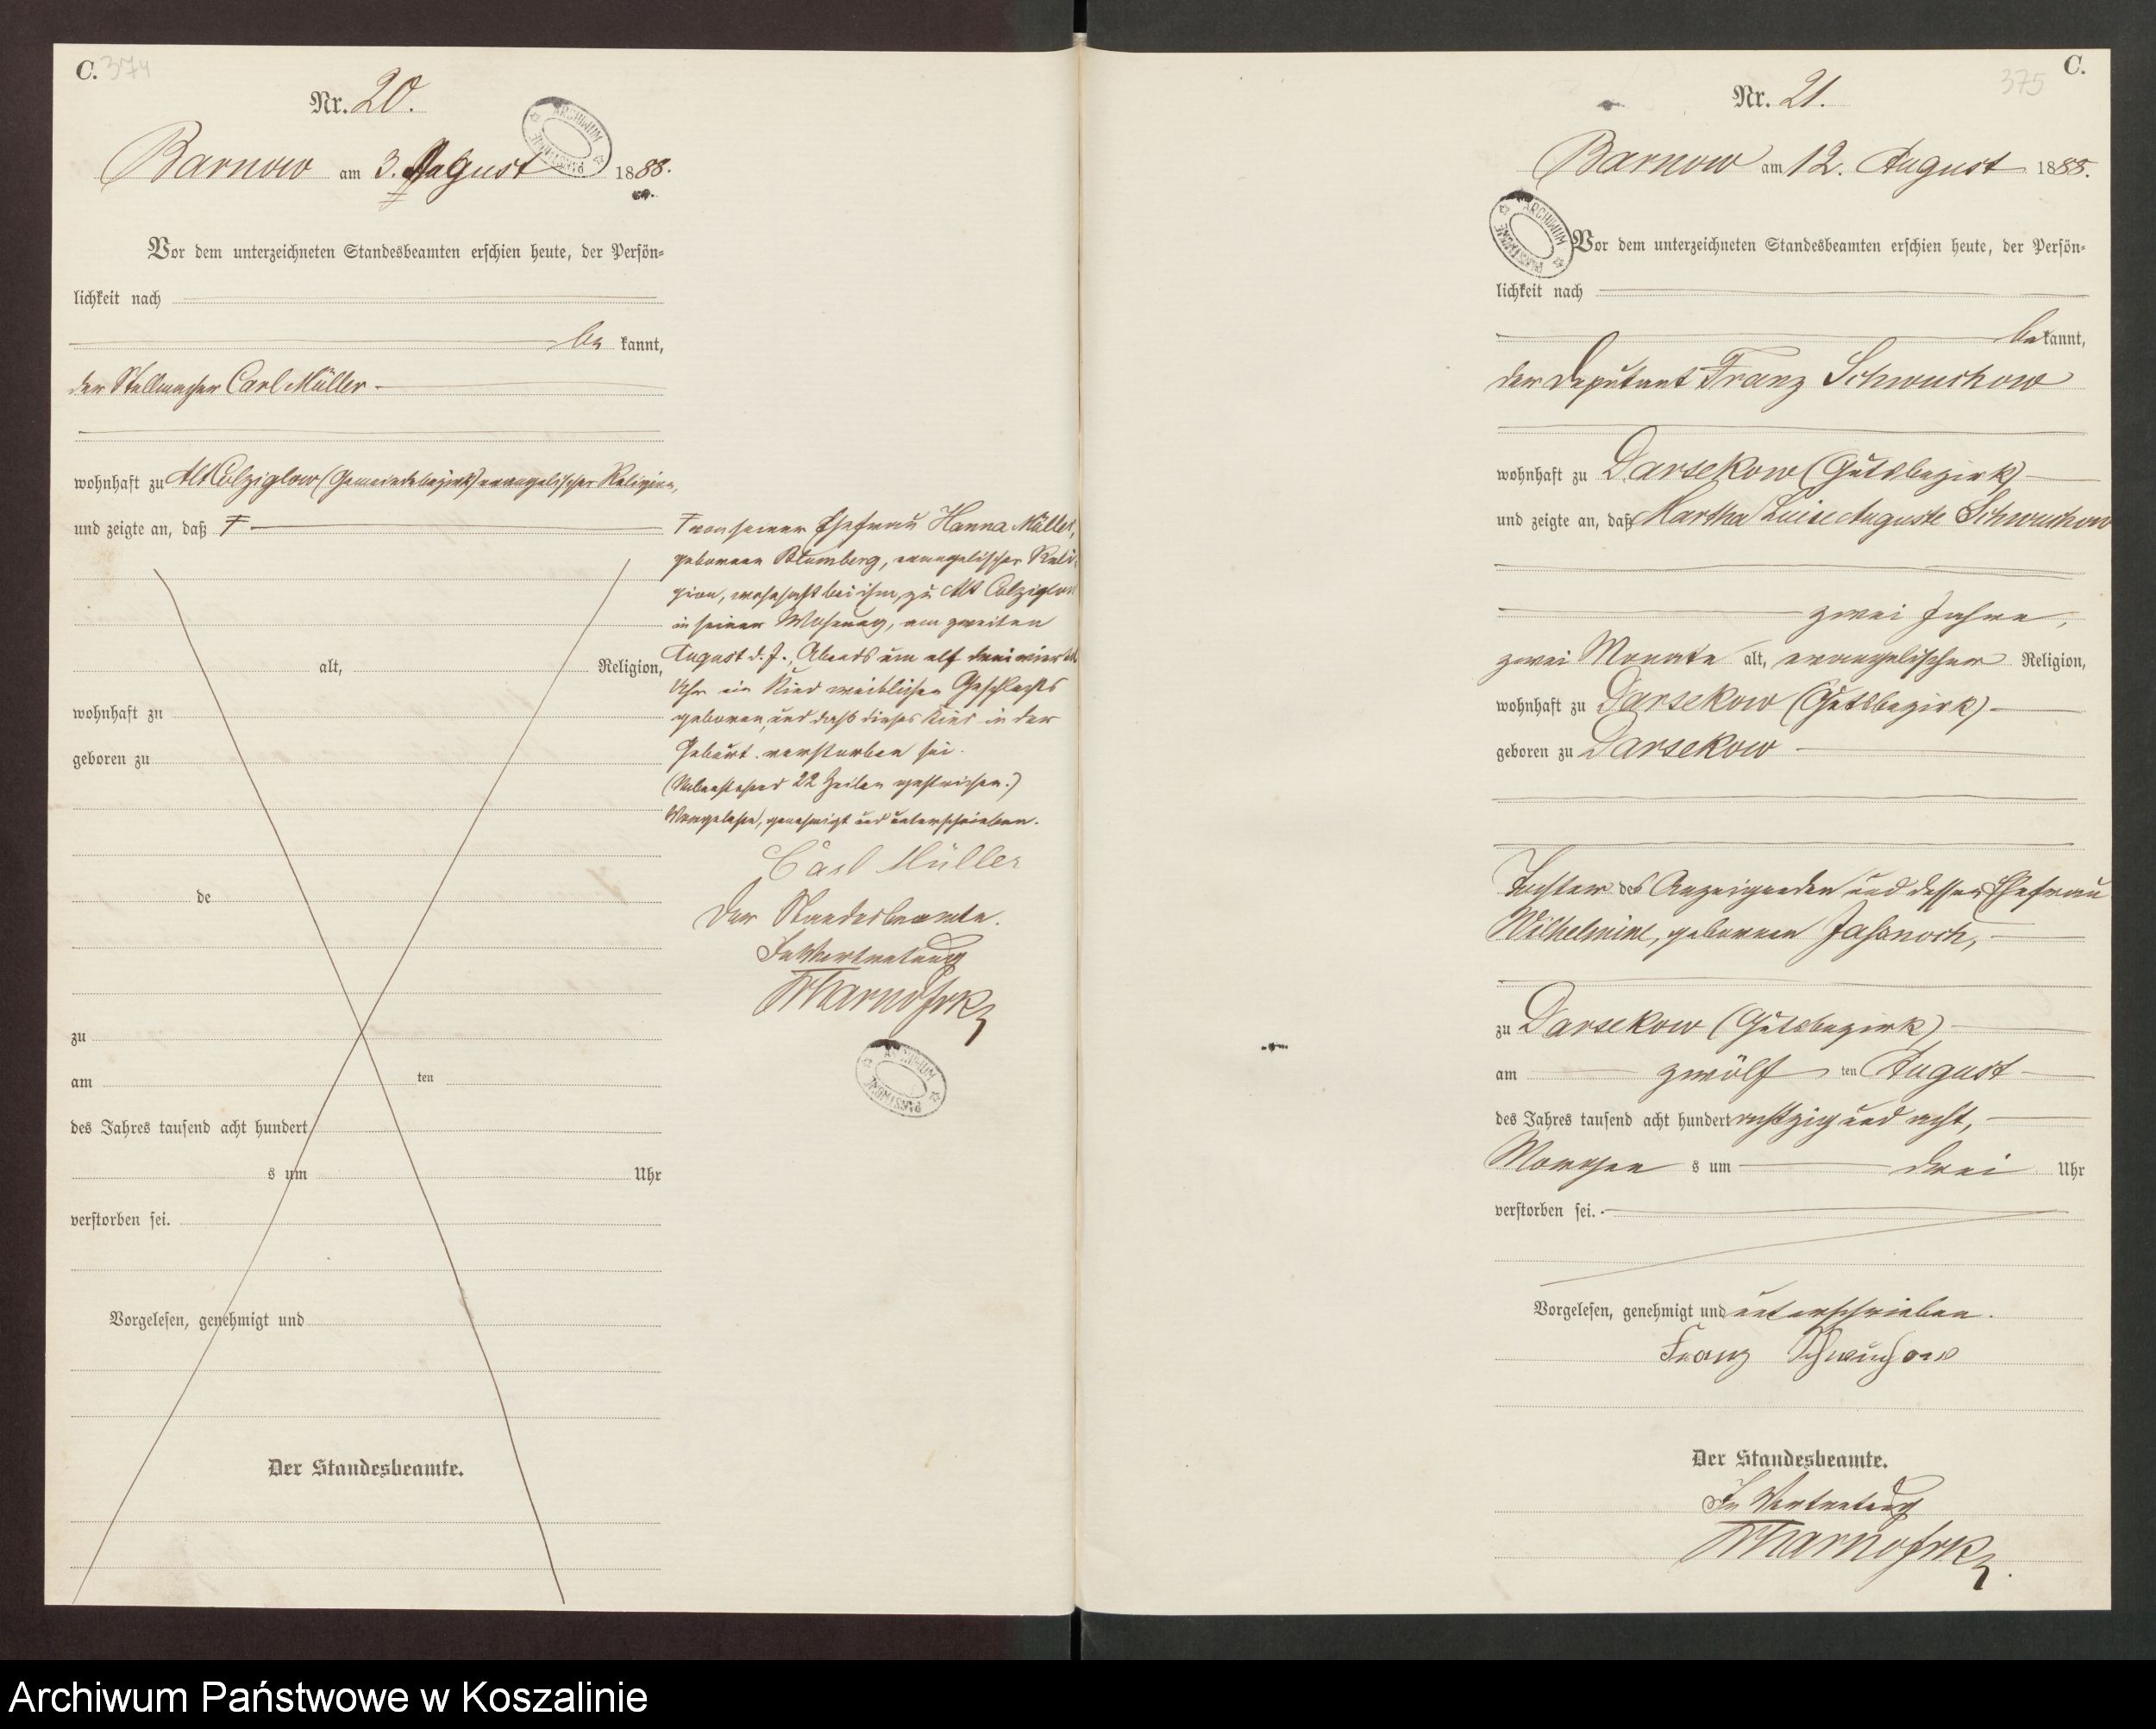 C. 374
Nr. 20.
Barnow am 3. August 1888.
Vor dem unterzeichneten Standesbeamten erschien heute, der Persön-
lichkeit nach
be kannt,
der Stellmacher Carl Müller
wohnhaft zu Alt Colziglow (Gemeindebezirk) evangelischer Religion,
und zeigte an, daß Ŧ
alt, Religion,
wohnhaft zu
geboren zu
de
zu
am ten
des Jahres tausend acht hundert
s um Uhr
verstorben sei.
Vorgelesen, genehmigt und
Der Standesbeamte.
Ŧ von seiner Ehefrau Hanna Müller,
geborenen Blumberg, evangelischer Reli-
gion, wohnhaft bei ihm, zu Alt Colziglow
in seiner Wohnung, am zweiten
August d. J., Abends um elf dreiviertel
Uhr ein Kind weiblichen Geschlechts
geboren, und daß dieses Kind in der
Geburt verstorben sei.
(Nebenstehend 22 Zeilen gestrichen.)
Vorgelesen, genehmigt und unterschrieben.
Carl Müller
Der Standesbeamte.
In Vertretung
ARCHIWUM PAŃSTWOWE
C.
375
Nr. 21.
Barnow am 12. August 1888.
ARCHIWUM PAŃSTWOWE
Vor dem unterzeichneten Standesbeamten erschien heute, der Persön-
lichkeit nach
be kannt,
der Deputant Franz Schwuchow
wohnhaft zu Darsekow (Gutsbezirk)
und zeigte an, daß Martha Luise Auguste Schwuchow
zwei Jahre,
zwei Monate alt, evangelischer Religion,
wohnhaft zu Darsekow (Gutsbezirk)
geboren zu Darsekow
Tochter des Anzeigenden und dessen Ehefrau
Wilhelmine, geborenen
zu Darsekow (Gutsbezirk)
am zwölf ten August
des Jahres tausend acht hundert achtzig und acht,
Morgen s um drei Uhr
verstorben sei.
Vorgelesen, genehmigt und unterschrieben.
Franz Schwuchow
Der Standesbeamte.
In Vertretung
Archiwum Państwowe w Koszalinie